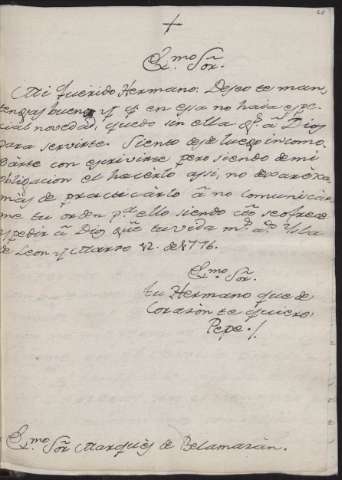 +
Ex.mo Sor.
Mi querido Hermano: Deseo te man
tengas bueno y q en esa no haia espe-
cial novedad, quedo sin ella q à Dios
para servirte. Siento desde luego incomo
darte con escrivirte pero siendo de mi
obligacion el hacerlo assi, no dexaré xa
màs de practicarlo â no comunicar
me tu orden pa ello siendo
pedir â Dios tu vida ms as Ysla
de Leon y Marzo 12. de 1776.
Exmo Sor.
tu Hermano que de
Corazon te quiere.
Pepe./.
Ex.mo Sor Marquès de Belamazàn.